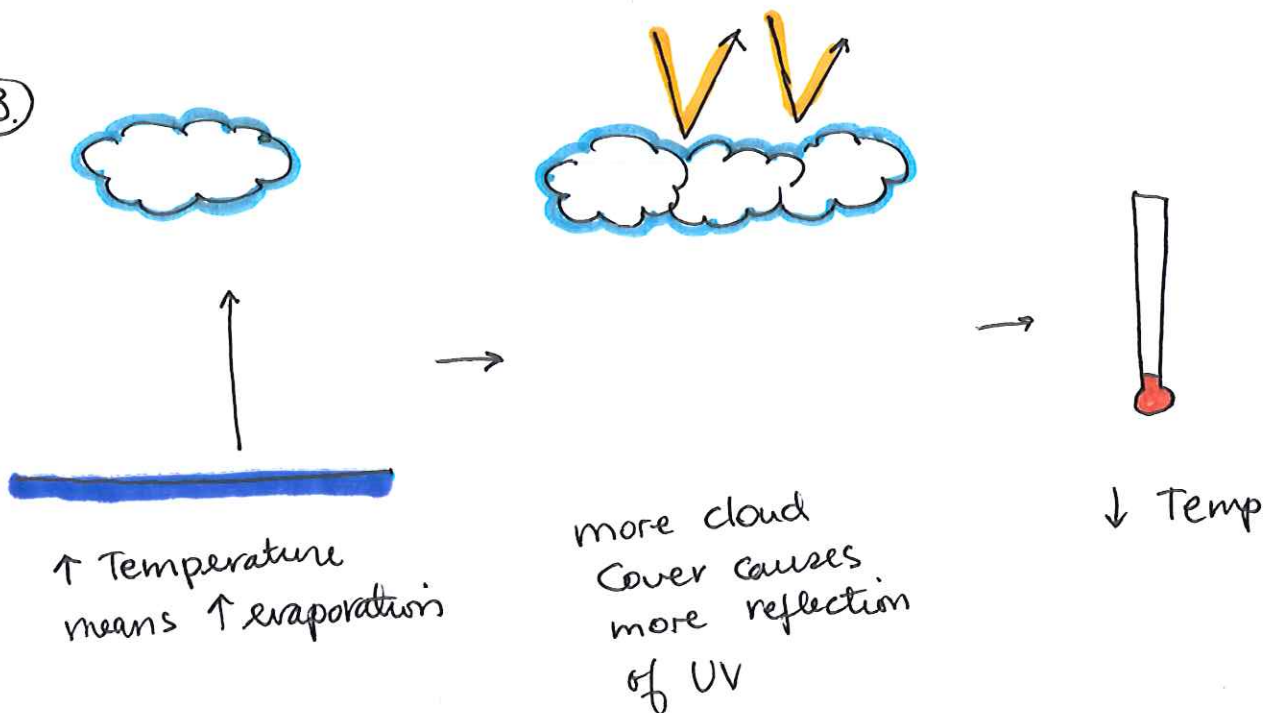 3.
↑ Temperature
means ↑ evaporation
more cloud
Cover causes
more reflection
of UV
↓ Temp